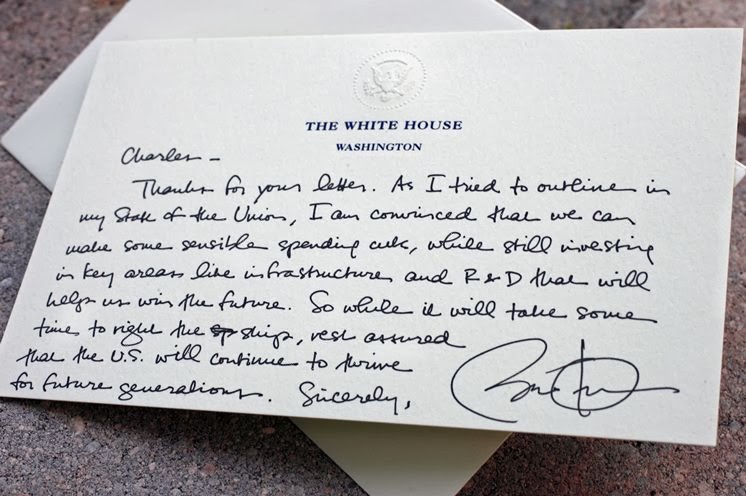 THE WHITE HOUSE
WASHINGTON
Charles –
Thanks for your letter. As I tried to outline in
my State of the Union, I am convinced that we can
make some sensible spending cuts, while still investing
in key areas like infrastructure and R & D that will
help us win the future. So while it will take some
time to right the ship, rest assured
that the U.S. will continue to thrive
for future generations. Sincerely,